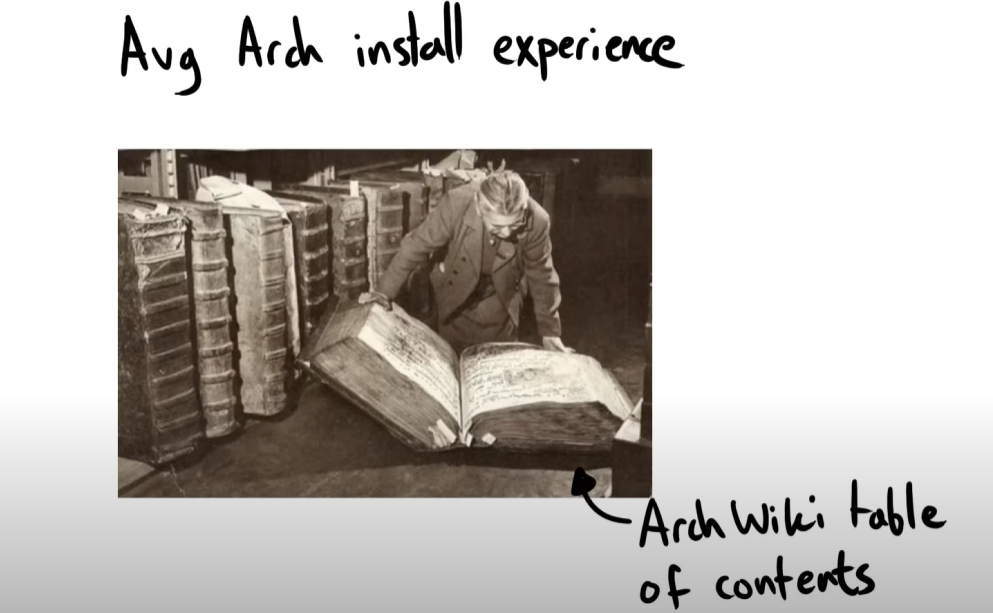 Avg Arch install experience
ArchWiki table
of contents